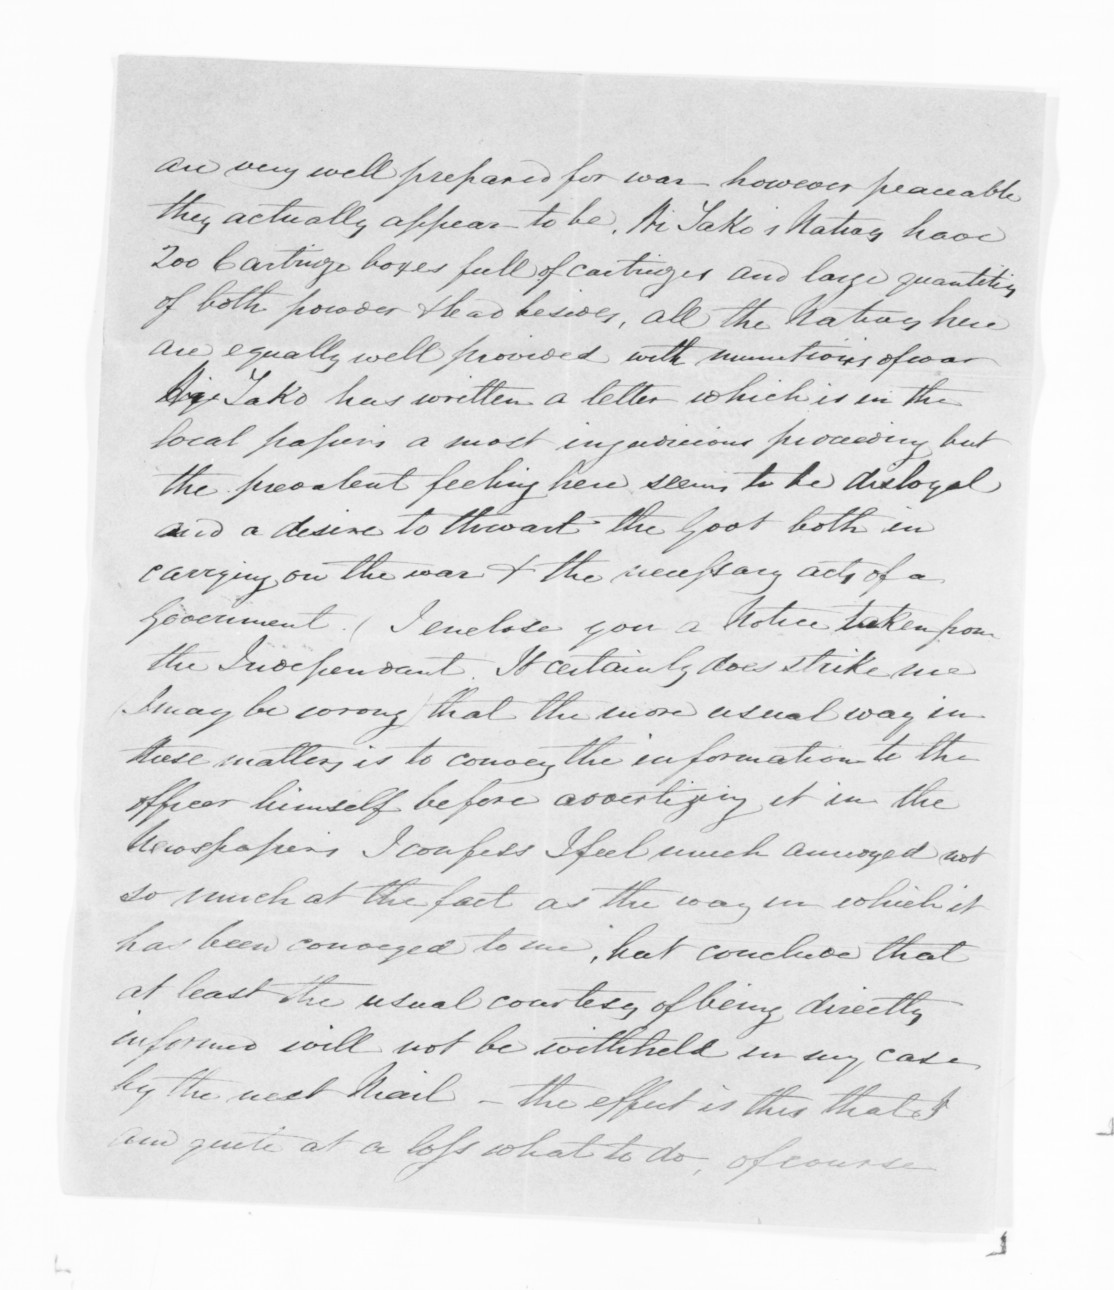 are very well prepared for war however peaceable
they actually appear to be. Hi Tako's Natives have
200 Cartridge boxes full of cartridges and large quantities
of both powder & lead besides, all the Natives here
are equally well provided with munitions of war
Tako has written a letter which is in the
local papers a most injudicious proceeding but
the prevalent feeling here seems to be disloyal
and a desire to thwart the Govt both in
carrying on the war & the necessary acts of a
Government. (I enclose you a Notice taken from
the Independant. It certainly does strike me
(I may be wrong) that the more usual way in
these matters is to convey the information to the
officer himself before advertizing it in the
Newspapers I confess I feel much annoyed not
so much at the fact as the way in which it
has been conveyed to me, but conclude that
at least the usual courtesy of being directly
informed will not be withheld in my case
by the next Mail – the effect is this that I
am quite at a loss what to do, of course